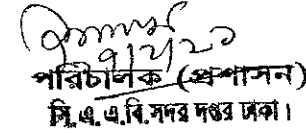 পরিচালক (প্রশাসন)
সি,এ,এ,বি,সদর দপ্তর ঢাকা।